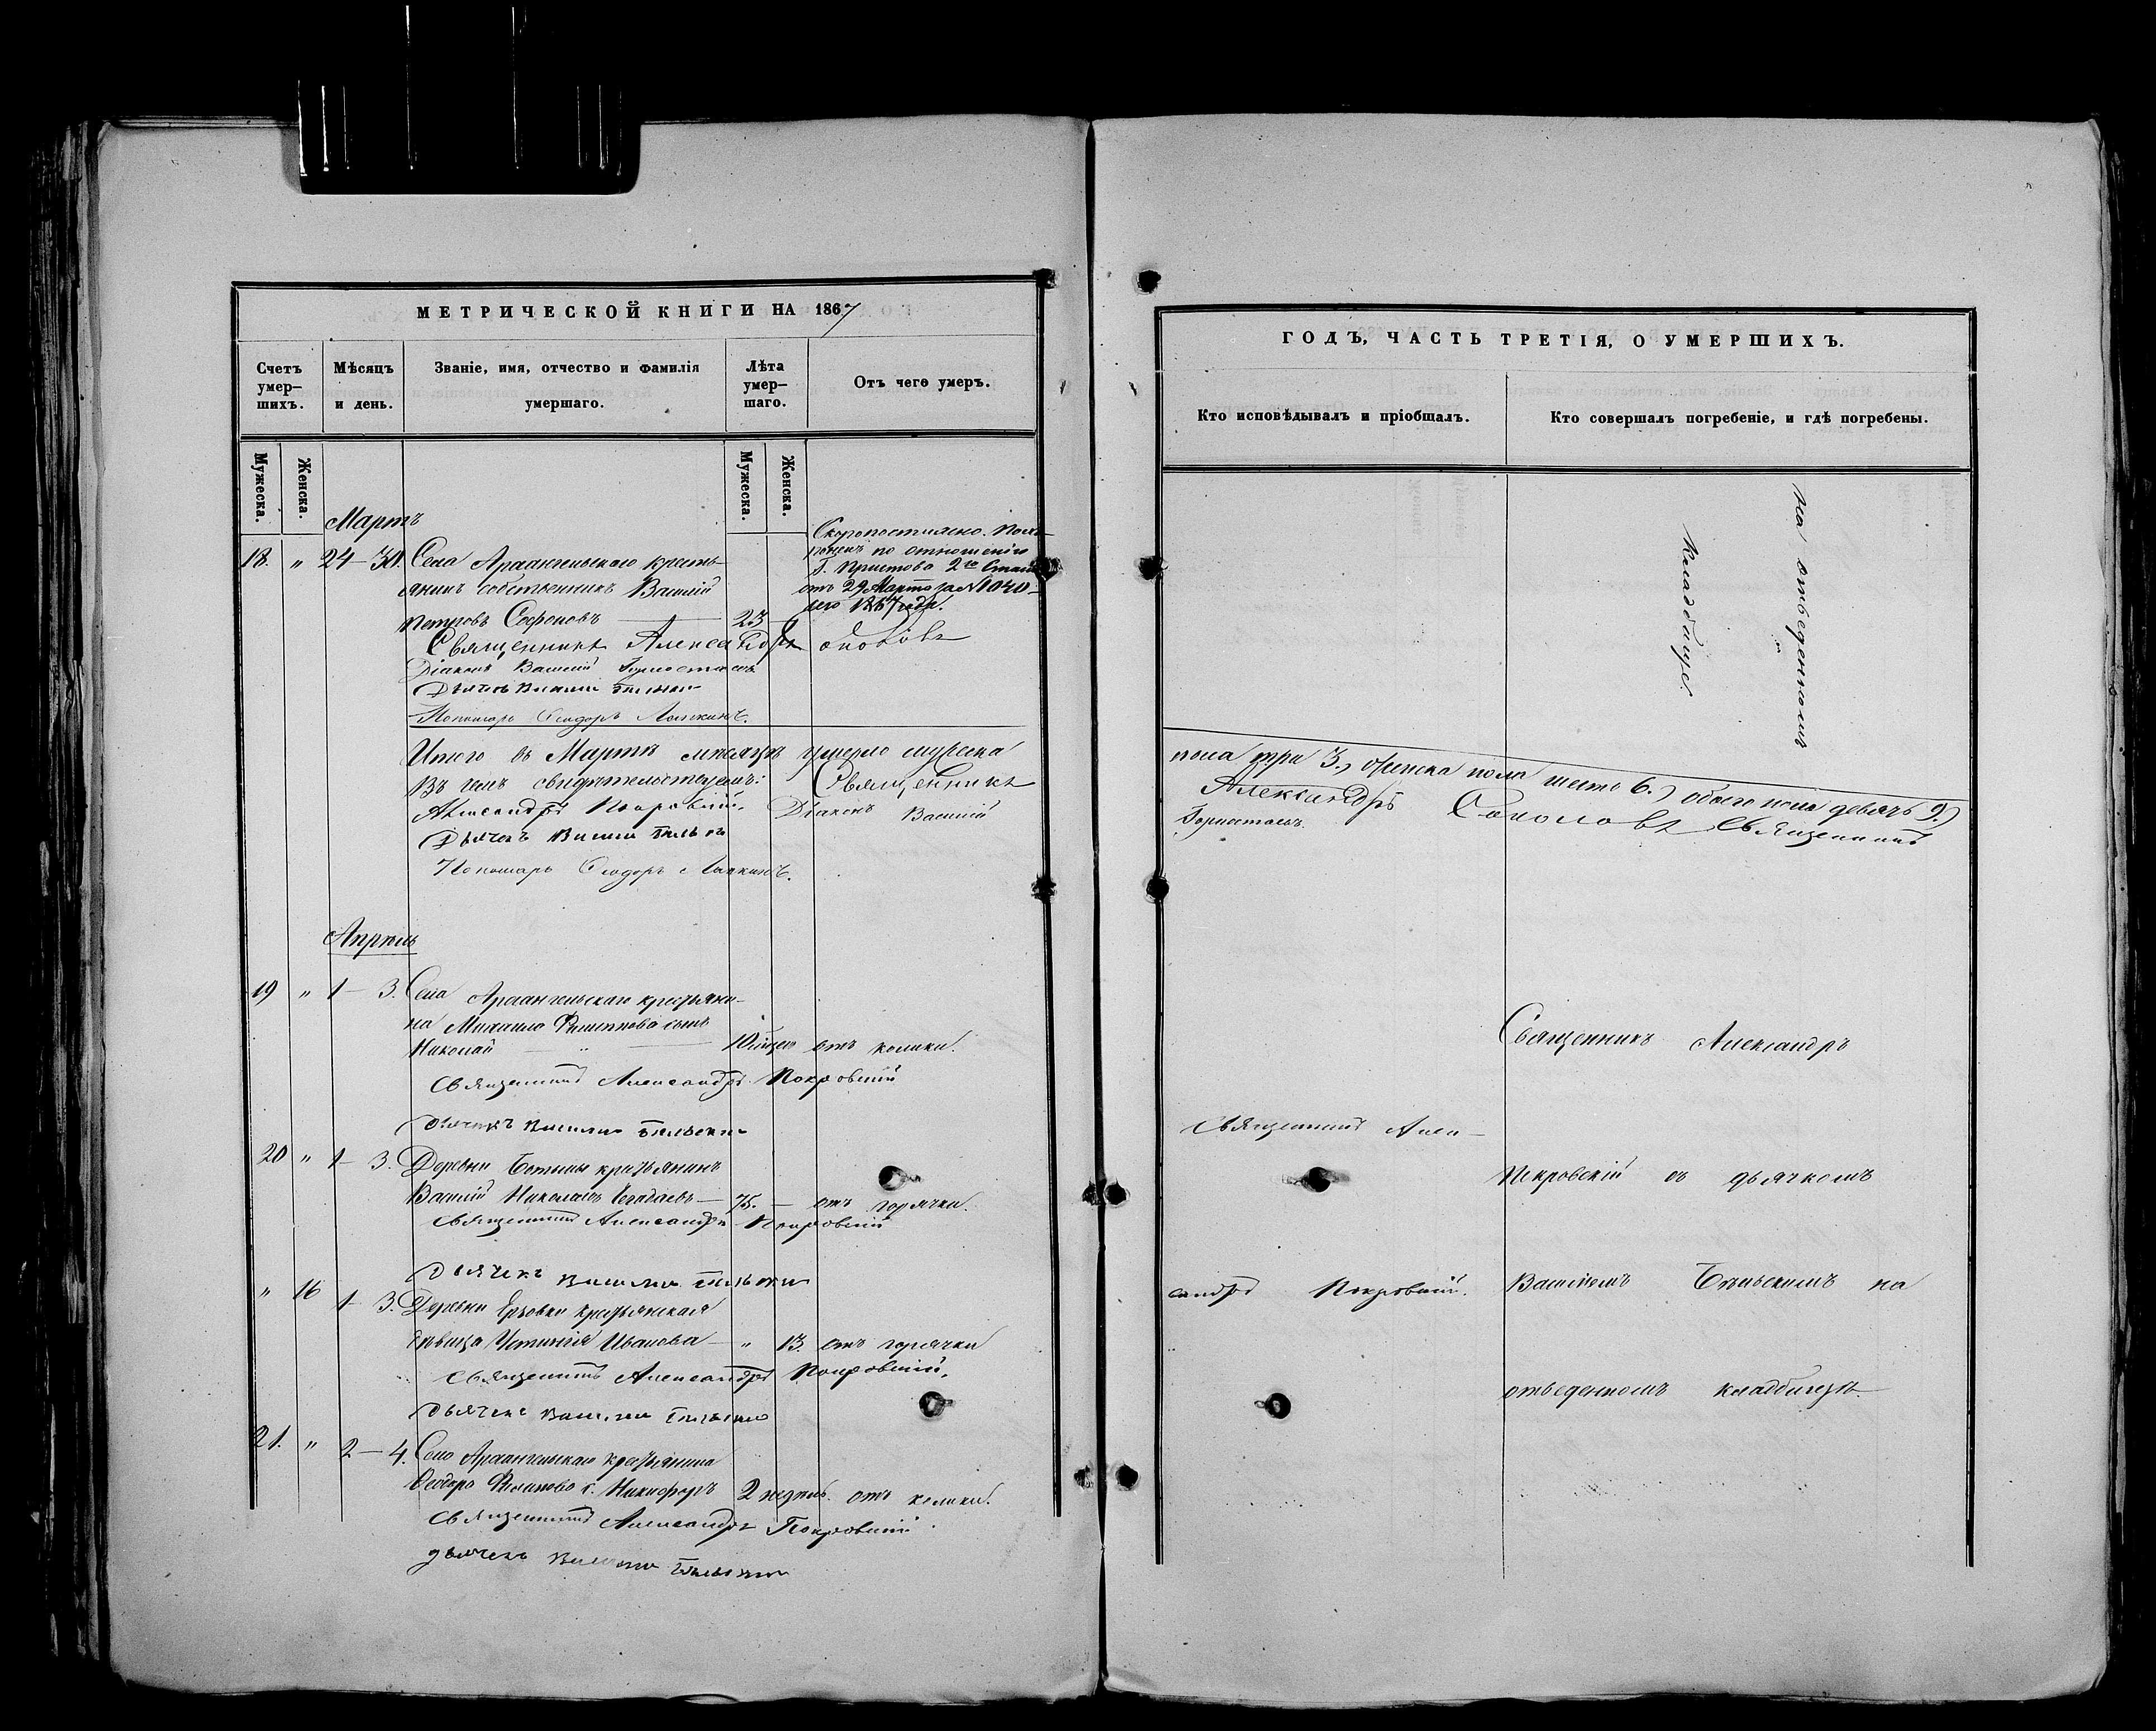 МЕТРИЧЕСКОЙ КНИГИ НА 1867
Счетъ умер-шихъ.
Мѣсяцъ и день.
Званіе, имя, отчество и фамилія умершаго.
Лѣта умер-шаго.
Отъ чего умеръ.
Мужеска.
Женска.
Мужеска.
Женска.
Мартъ
18. " 24 — 30. Села Архангельскаго кресть-
янинъ собственникъ Василій
Петровъ Софоновъ — 23 —
Скоропостижно. Похо-
роненъ по отношенію
Г. Пристова 2го Стана
отъ 29 Марта за № 1040
сего 1867 года.
Священникъ Александръ Соколовъ
Діаконъ Василій Горностаевъ
Дьячекъ Василій Бѣльскій
Пономарь Ѳеодоръ
Итого въ Мартѣ мѣсяцѣ умерло мужеска
Въ чемъ свидѣтельствуемъ: Священникъ
Александръ Покровскій. Діаконъ Василій
Дьячекъ Василій Бѣльскій
Пономарь Ѳеодоръ
Апрѣль
19 " 1 — 3. Села Архангельскаго крестьяни-
на Михаила Филиппова сынъ
Николай — " — отъ колики.
Священникъ Александръ Покровскій
Дьячекъ Василій Бѣльскій
20 " 1 — 3. Деревни крестьянинъ
Василій Николаевъ — 75. — отъ горячки.
Священникъ Александръ Покровскій
Дьячекъ Василій Бѣльскій
" 16 1 — 3. Деревни крестьянская
дѣвица Устинія Иванова — " 13. отъ горячки
Священникъ Александръ Покровскій.
Дьячекъ Василій Бѣльскій
21. " 2 — 4. Села Архангельскаго крестьянина
Ѳеодора Филипова с. Никифоръ 2 недѣль. отъ колики.
Священникъ Александръ Покровскій
дьячекъ Василій Бѣльскій
ГОДЪ, ЧАСТЬ ТРЕТІЯ, О УМЕРШИХЪ.
Кто исповѣдывалъ и пріобщалъ.
Кто совершалъ погребеніе, и гдѣ погребены.
На отведенномъ
кладбищѣ.
пола три 3., женска пола шесть 6., обоего пола девять 9.
Александръ Соколовъ Священникъ
Горностаевъ.
Священникъ Александръ
Священникъ Алек-
Покровскій съ дьячкомъ
сандръ Покровскій.
Василіемъ Бѣльскимъ на
отведенномъ кладбищѣ.